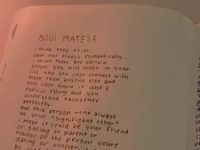 SOUL MATES?
I think they exist.
but not always romantically.
I think there are certain
people you will meet in your
life who you just connect with
more than anyone else and
you just know it isn't a
radical thing and you
understand eachother
perfectly
and this person wont always
be your "significant other"
I mean it could be your friend
or sibling or parent or
 of the person youre
dating or whoever